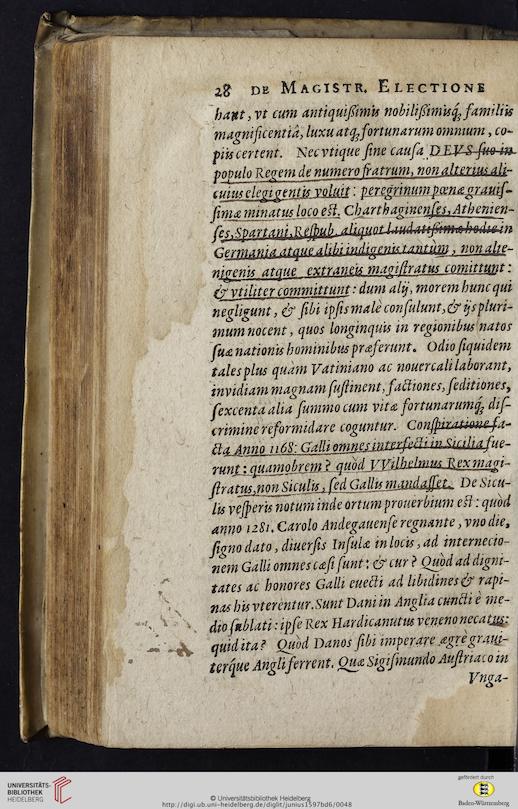 28 DE MAGISTR. ELECTIONE
hant, vt cum antiquißimis nobilißimisq́; familiis
magnificentiâ, luxu atq; fortunarum omnium, co-
piis certent. Nec vtique ſine cauſa DEVS ſuo in
populo Regem de numero fratrum, non alterius ali-
cuius elegi gentis voluit: peregrinum pœnæ grauiſ-
ſimæ minatus loco eſt. Charthaginenſes, Athenien-
ſes, Spartani, Reſpub. aliquot laudatißimæ hodie in
Germania atque alibi indigenis tantùm, non alie-
nigenis atque extraneis magiſtratus comittunt:
& vtiliter committunt: dum alij, morem hunc qui
negligunt, & ſibi ipſis malè conſulunt, & ijs pluri-
mum nocent, quos longinquis in regionibus natos
ſuæ nationis hominibus præferunt. Odio ſiquidem
tales plus quàm Vatiniano ac nouercali laborant,
inuidiam magnam ſuſtinent, factiones, ſeditiones,
ſexcenta alia ſummo cum vitæ fortunarumq́; diſ-
crimine reformidare coguntur. Conſpiratione fa-
cta Anno 1168. Galli omnes interfecti in Sicilia fue-
runt: quamobrem? quòd VVilhelmus Rex magi-
ſtratus, non Siculis, ſed Gallis mandaſſet. De Sicu-
lis veſperis notum inde ortum prouerbium eſt: quòd
anno 1281. Carolo Andegauenſe regnante, vno die,
ſigno dato, diuerſis Inſulæ in locis, ad internecio-
nem Galli omnes cæſi ſunt: & cur? Quòd ad digni-
tates ac honores Galli euecti ad libidines & rapi-
nas his vterentur. Sunt Dani in Anglia cuncti è me-
dio ſublati: ipſe Rex Hardicanutus veneno necatus:
quid ita? Quòd Danos ſibi imperare ægrè graui-
terq́ue Angli ferrent. Quæ Sigiſmundo Auſtriaco in
Vnga-
UNIVERSITÄTS-
BIBLIOTHEK
HEIDELBERG
© Universitätsbibliothek Heidelberg
http://digi.ub.uni-heidelberg.de/diglit/junius1597bd6/0048
gefördert durch
Baden-Württemberg